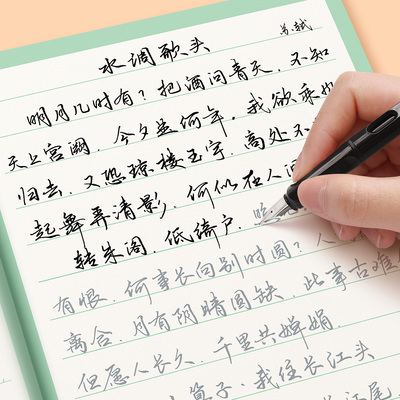 水调歌头
苏轼
明月几时有？把酒问青天．不知
天上宫阙．今夕是何年．我欲乘
归去．又恐琼楼玉宇．高处不
起舞弄清影．何似在人间
转朱阁．低绮户．
有恨．何事长向别时圆？人
离合．月有阴晴圆缺．此事古难
但愿人长久．千里共婵娟．
算子．我住长江头
江尾